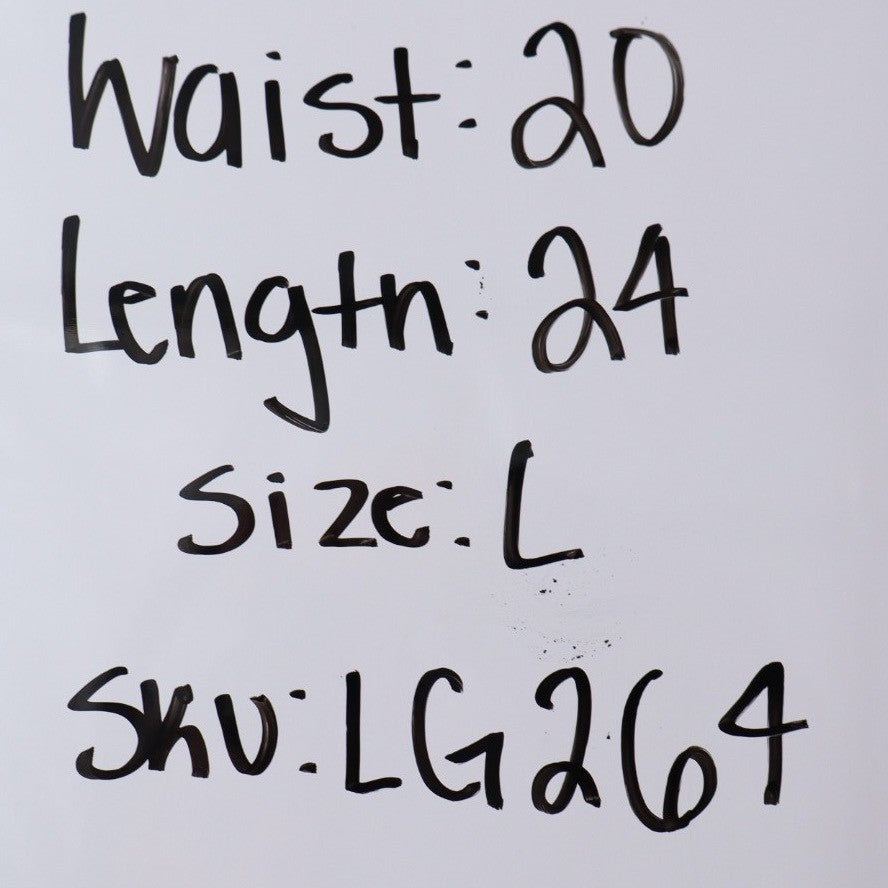 Waist: 20
Length: 24
Size: L
SKU: LG264